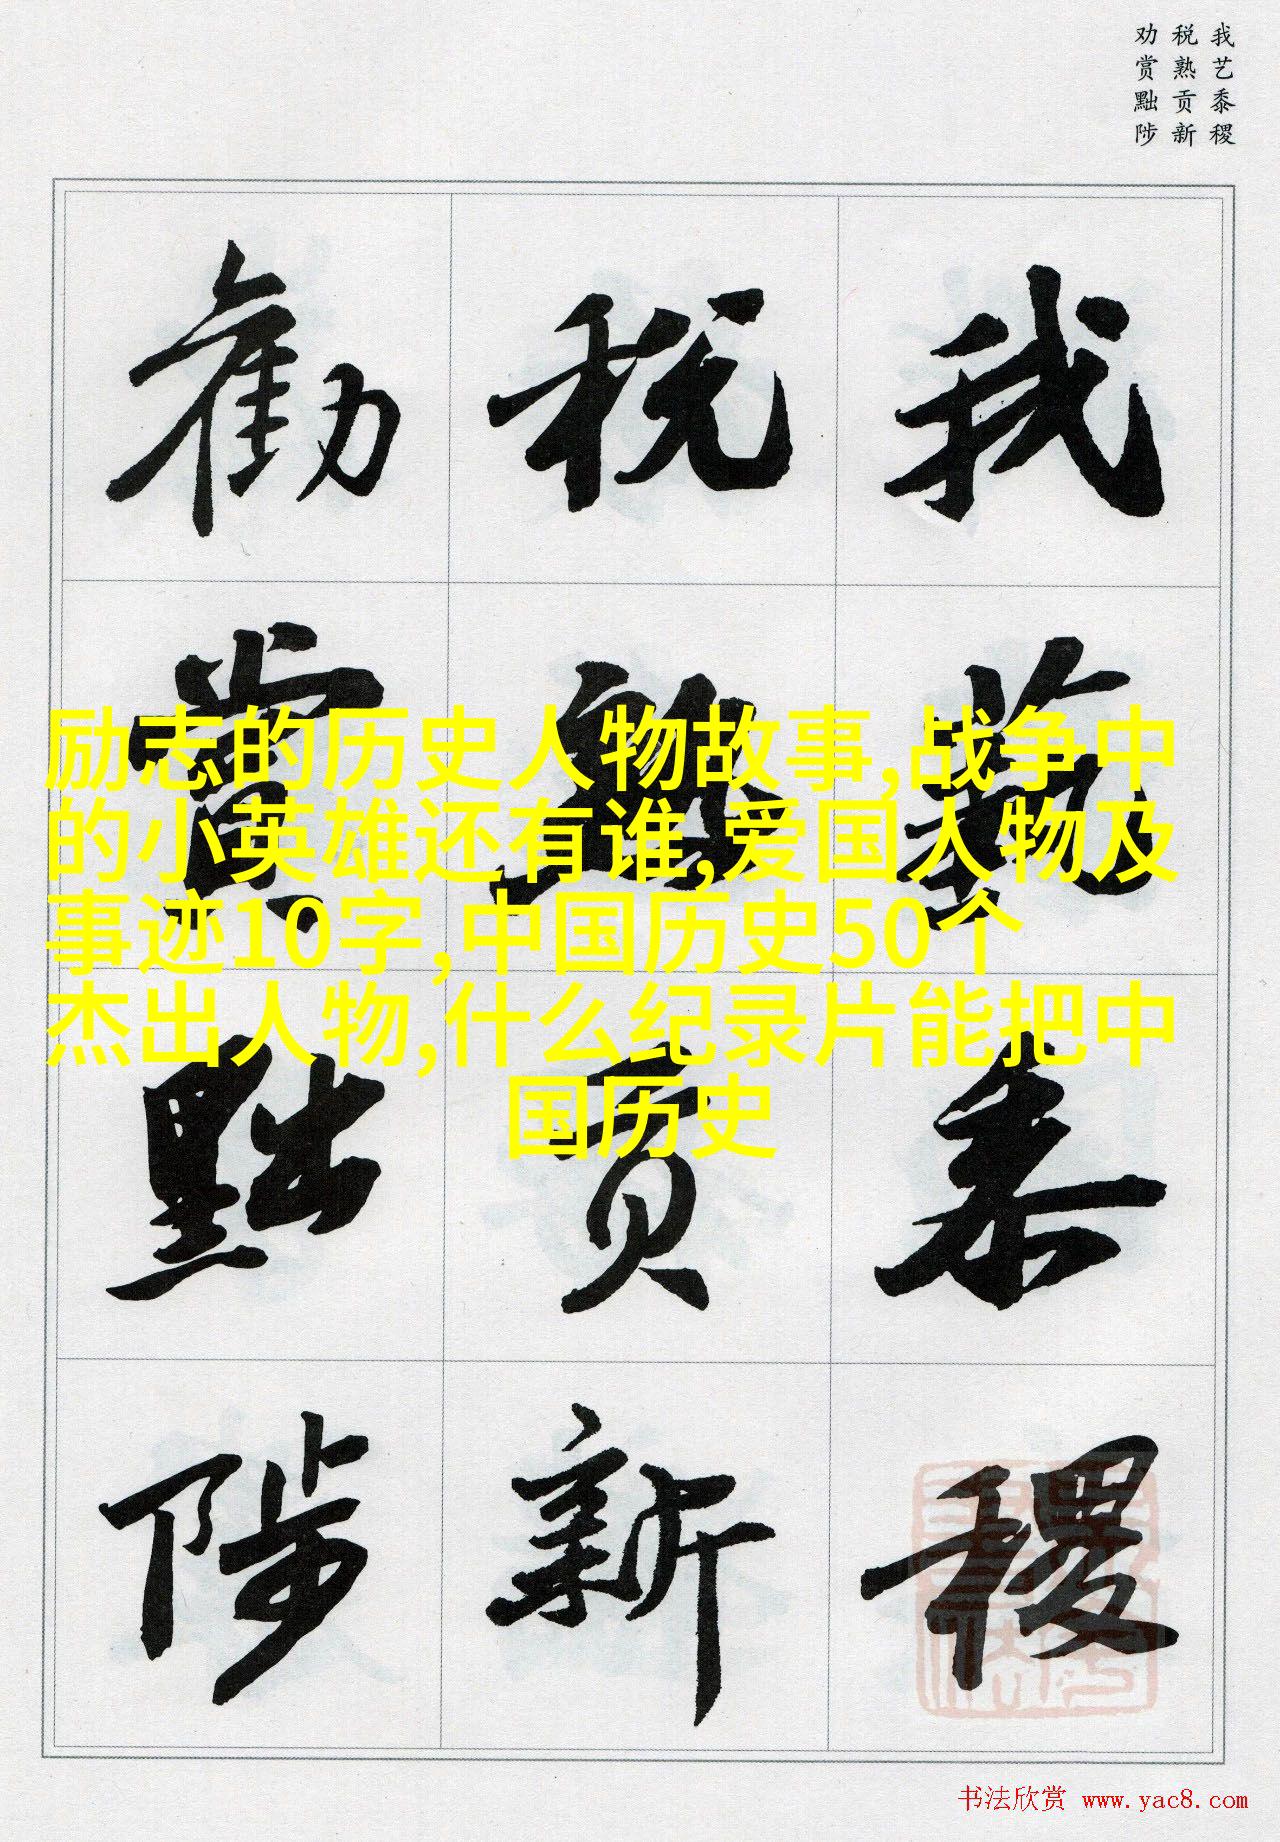 我艺黍稷
税熟贡新
劝赏黜陟
我藝黍稷
税熟貢新
勸賞黜陟
励志的历史人物故事,战争中
的小英雄还有谁,爱国人物及
事迹10字,中国历史50个
杰出人物,什么纪录片能把中
国历史
书法欣赏 www.yac8.com